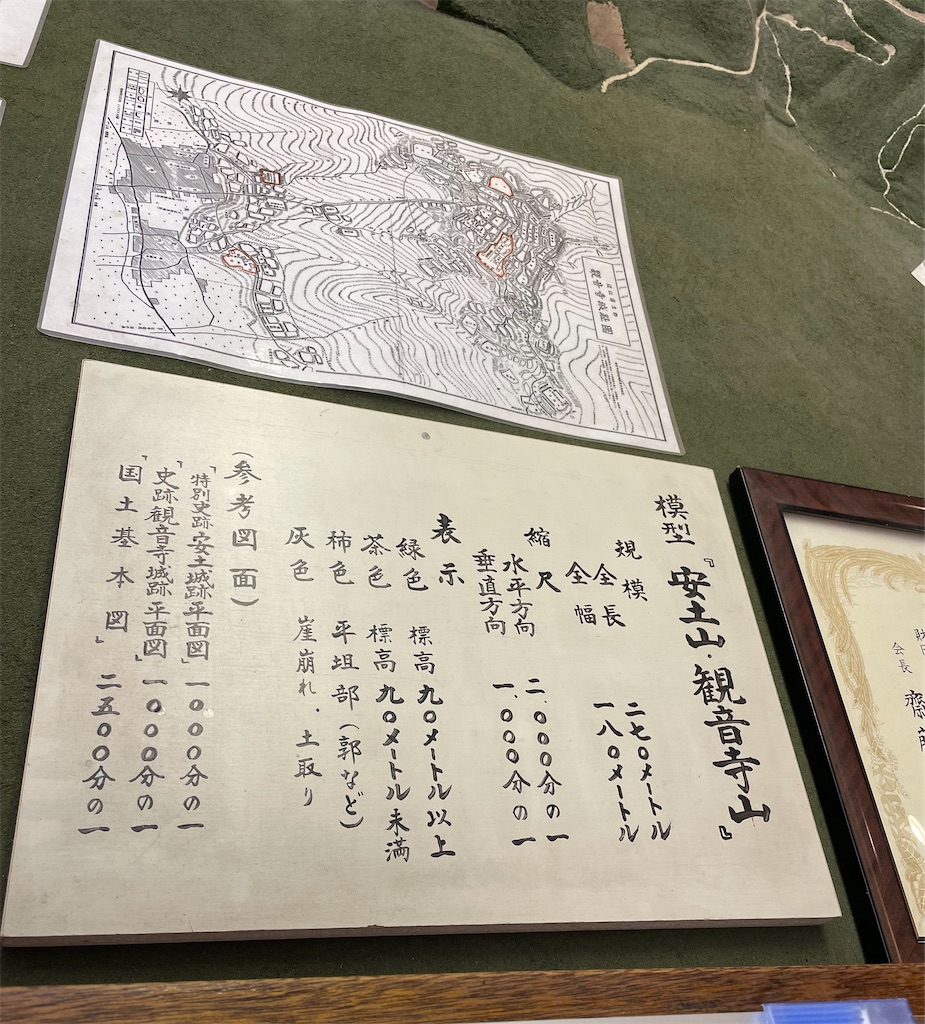 模型『安土山・観音寺山』
規模
全長 二・七〇メートル
全幅 一・八〇メートル
縮尺
水平方向 二、〇〇〇分の一
垂直方向 一、〇〇〇分の一
表示
緑色 標高九〇メートル以上
茶色 標高九〇メートル未満
柿色 平坦部(郭など)
灰色 崖崩れ・土取り
(参考図面)
「特別史跡安土城跡平面図」一〇〇〇分の一
「史跡観音寺城跡平面図」一〇〇〇分の一
「国土基本図」二五〇〇分の一
観音寺城趾図
会長